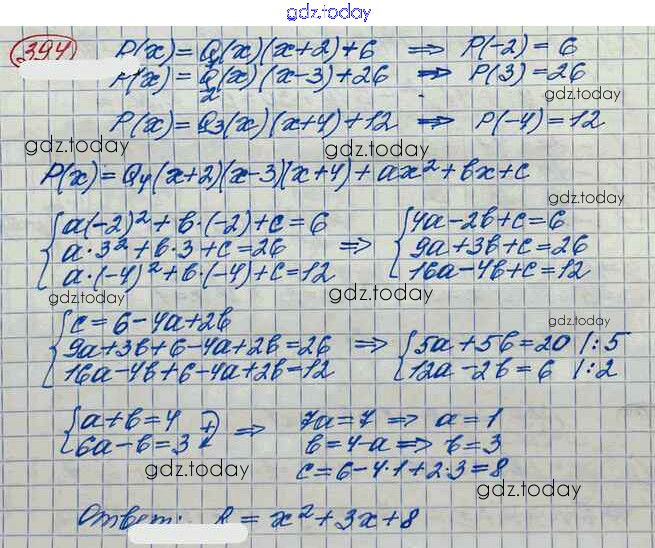 gdz.today
394 P(x) = Q₁(x)(x+2)+6 ⇒ P(-2) = 6
P(x) = Q₂(x)(x-3)+26 ⇒ P(3) = 26
gdz.today
P(x) = Q₃(x)(x+4)+12 ⇒ P(-4) = 12
gdz.today gdz.today
P(x) = Q₄(x+2)(x-3)(x+4)+ax²+bx+c
gdz.today
{a(-2)²+b·(-2)+c=6 {4a-2b+c=6
a·3²+b·3+c=26 ⇒ 9a+3b+c=26
a·(-4)²+b·(-4)+c=12 16a-4b+c=12
gdz.today gdz.today
{c=6-4a+2b
gdz.today
9a+3b+6-4a+2b=26 ⇒ {5a+5b=20 |:5
16a-4b+6-4a+2b=12 12a-2b=6 |:2
{a+b=4 + ⇒ 7a=7 ⇒ a=1
6a-b=3 b=4-a ⇒ b=3
gdz.today c=6-4·1+2·3=8
gdz.today
Ответ: R = x²+3x+8